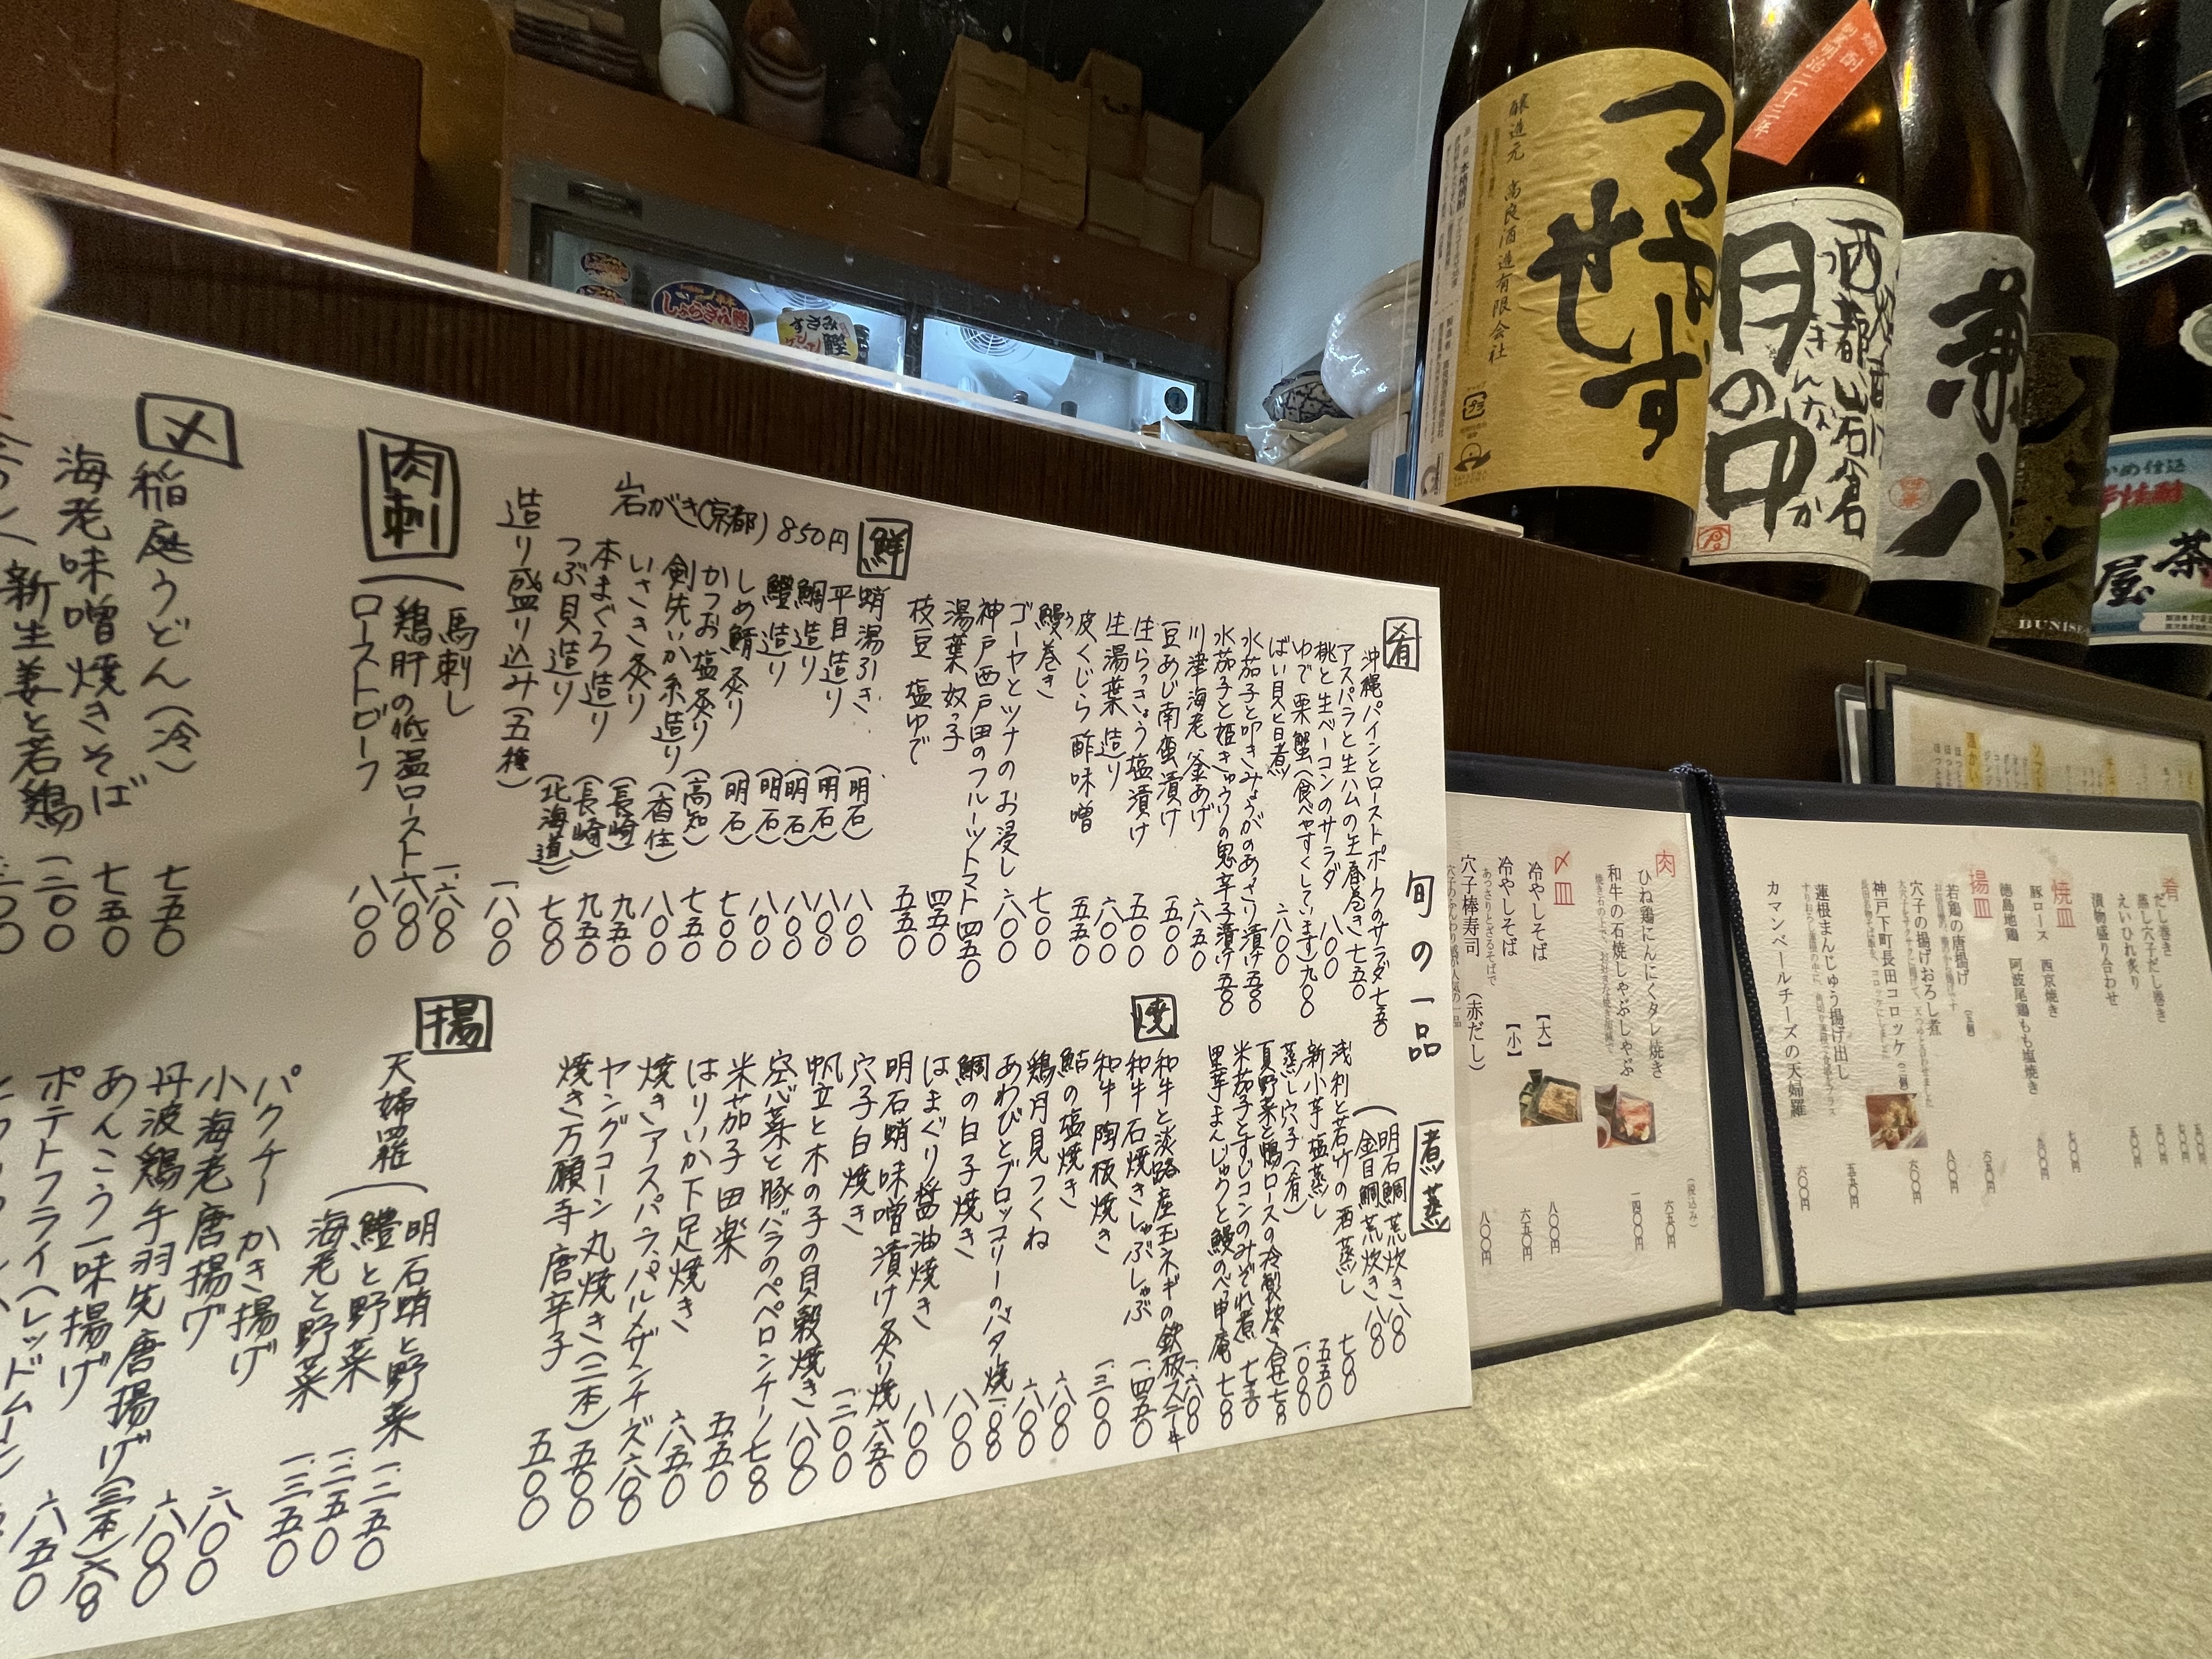 旬の一品
肴
沖縄パインとローストポークのサラダ 七五〇
アスパラと生ハムの生春巻き 七五〇
桃と生ベーコンのサラダ 八〇〇
ゆで栗蟹(食べやすくしています) 九〇〇
ばい貝旨煮 六〇〇
水茄子と叩きみょうがのあさり漬け 五五〇
水茄子と姫きゅうりの鬼辛子漬け 五〇〇
川津海老 釜あげ 六五〇
豆あじ南蛮漬け 五〇〇
生らっきょう塩漬け 五〇〇
生湯葉 造り 六〇〇
皮くじら酢味噌 五五〇
鰻う巻き 七〇〇
ゴーヤとツナのお浸し 六〇〇
神戸西戸田のフルーツトマト 四五〇
湯葉奴っ子 四五〇
枝豆 塩ゆで 五五〇
鮮
岩がき(京都) 850円
蛸湯引き (明石) 八〇〇
平目造り (明石) 八〇〇
鯛造り (明石) 八〇〇
鱧造り (明石) 八〇〇
しめ鯖炙り (明石) 七〇〇
かつお塩炙り (高知) 七五〇
剣先いか糸造り (香住) 八〇〇
いさき炙り (長崎) 九五〇
本まぐろ造り (長崎) 九五〇
つぶ貝造り (北海道) 七〇〇
造り盛り込み(五種) 一八〇〇
肉刺
馬刺し 一六〇〇
鶏肝の低温ロースト 六〇〇
ローストビーフ 八〇〇
〆
稲庭うどん(冷) 七五〇
海老味噌焼きそば 七五〇
新生姜と若鶏
煮 蒸
明石鯛 荒炊き 一八〇〇
金目鯛 荒炊き 一八〇〇
浅利と若竹の酒蒸し 七〇〇
新小芋 塩蒸し 五五〇
蒸し穴子(肴) 一〇〇〇
夏野菜と鴨ロースの冷製炊き合せ
米茄子とすじコンのみぞれ煮 七五〇
里芋まんじゅうと鰻のべっ甲庵 七〇〇
焼
和牛と淡路産玉ネギの鉄板ステーキ 一六〇〇
和牛石焼きしゃぶしゃぶ 一四五〇
和牛陶板焼き 一三〇〇
鮎の塩焼き 八〇〇
鶏月見つくね 六〇〇
あわびとブロッコリーのバター焼
鯛の白子焼き 八〇〇
はまぐり醤油焼き 八〇〇
明石蛸味噌漬け炙り焼 六五〇
穴子白焼き 一二〇〇
帆立と木の子の貝殻焼き 八〇〇
空心菜と豚バラのペペロンチーノ 七〇〇
米茄子田楽 五五〇
はりいか下足焼き 六五〇
焼きアスパラ、パルメザンチーズ 六〇〇
ヤングコーン丸焼き(二本) 五〇〇
焼き万願寺唐辛子 五〇〇
揚
天婦羅
明石蛸と野菜 一二五〇
鱧と野菜 一三五〇
海老と野菜 一三五〇
パクチーかき揚げ
小海老唐揚げ 六〇〇
丹波鶏手羽先唐揚げ(三本) 六〇〇
あんこう一味揚げ
ポテトフライ(レッドムーン) 六五〇
肉
ひね鶏にんにくタレ焼き 六五〇円
和牛の石焼しゃぶしゃぶ 一四〇〇円
(税込み)
〆皿
冷やしそば 【大】 八〇〇円
冷やしそば 【小】 六五〇円
あっさりとざるそばで
穴子棒寿司 (赤だし) 八〇〇円
肴
だし巻き
蒸し穴子だし巻き
えいひれ炙り
漬物盛り合わせ
焼皿
豚ロース 西京焼き
徳島地鶏 阿波尾鶏もも塩焼き
揚皿
若鶏の唐揚げ
穴子の揚げおろし煮
神戸下町長田コロッケ(二個)
蓮根まんじゅう揚げ出し
カマンベールチーズの天婦羅 六〇〇円
つるやせず
醸造元 高良酒造有限会社
本格焼酎
酒都山石倉
月の中
兼八
かめ仕込
芋焼酎
茶屋
BUNISE
しょうさん鰹
すさみ
鰹